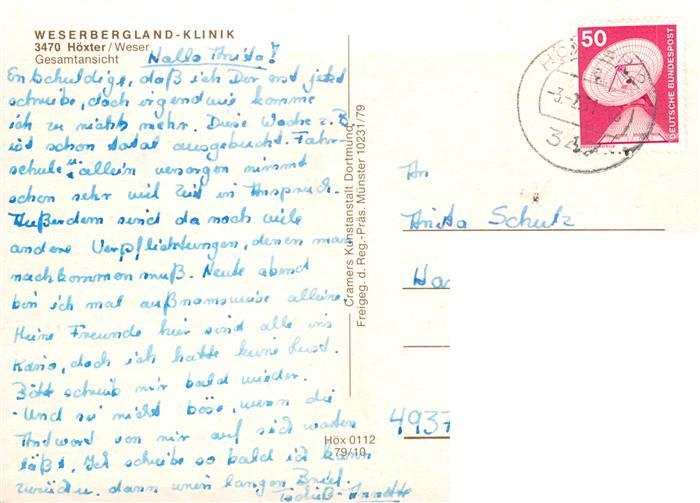 WESERBERGLAND-KLINIK
3470 Höxter/Weser
Gesamtansicht
Hallo Anita!
Entschuldige, daß ich Dir erst jetzt
schreibe, doch irgendwie komme
ich zu nichts mehr. Diese Woche z.B.
ist schon total ausgebucht. Fahr-
schule, allein versorgen nimmt
schon sehr viel Zeit in Anspruch.
Außerdem sind da noch viele
andere Verpflichtungen, denen man
nachkommen muß. Heute abend
bin ich mal außnamsweise alleine
Meine Freunde hier sind alle ins
Kino, doch ich hatte keine Lust.
Bitte schreib mir bald wieder.
Und sei nicht böse, wenn die
Antword von mir auf sich warten
läßt. Ich schreibe so bald ich kann
zurück. dann einen langen Brief.
Tschüß Annette
Cramers Kunstanstalt Dortmund
Freigeg. d. Reg.-Präs. Münster 10231/79
Höx 0112
79/10
50
DEUTSCHE BUNDESPOST
An
Anita Schulz
Ha
4937